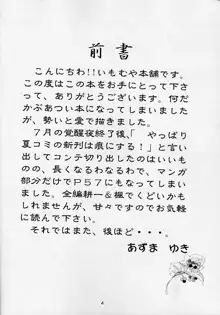 前書
こんにちわ!!いもむや本舗です。
この度はこの本をお手にとって下さっ
て、ありがとうございます。何だ
かぶあつい本になってしまいまし
たが、勢いと愛で描きました。
7月の覚醒夜終了後、「やっぱり
夏コミの新刊は痕にする！」と言い
出してコンテ切りしたのはいいも
のの、長くなるわなるわで、マンガ
部分だけでP57にもなってしまい
ました。全編耕一&楓でくどいかも
しれませんが、甘々ですのでお気軽
に読んで下さい。
それではまた、後ほど・・・。
あずま ゆき
4